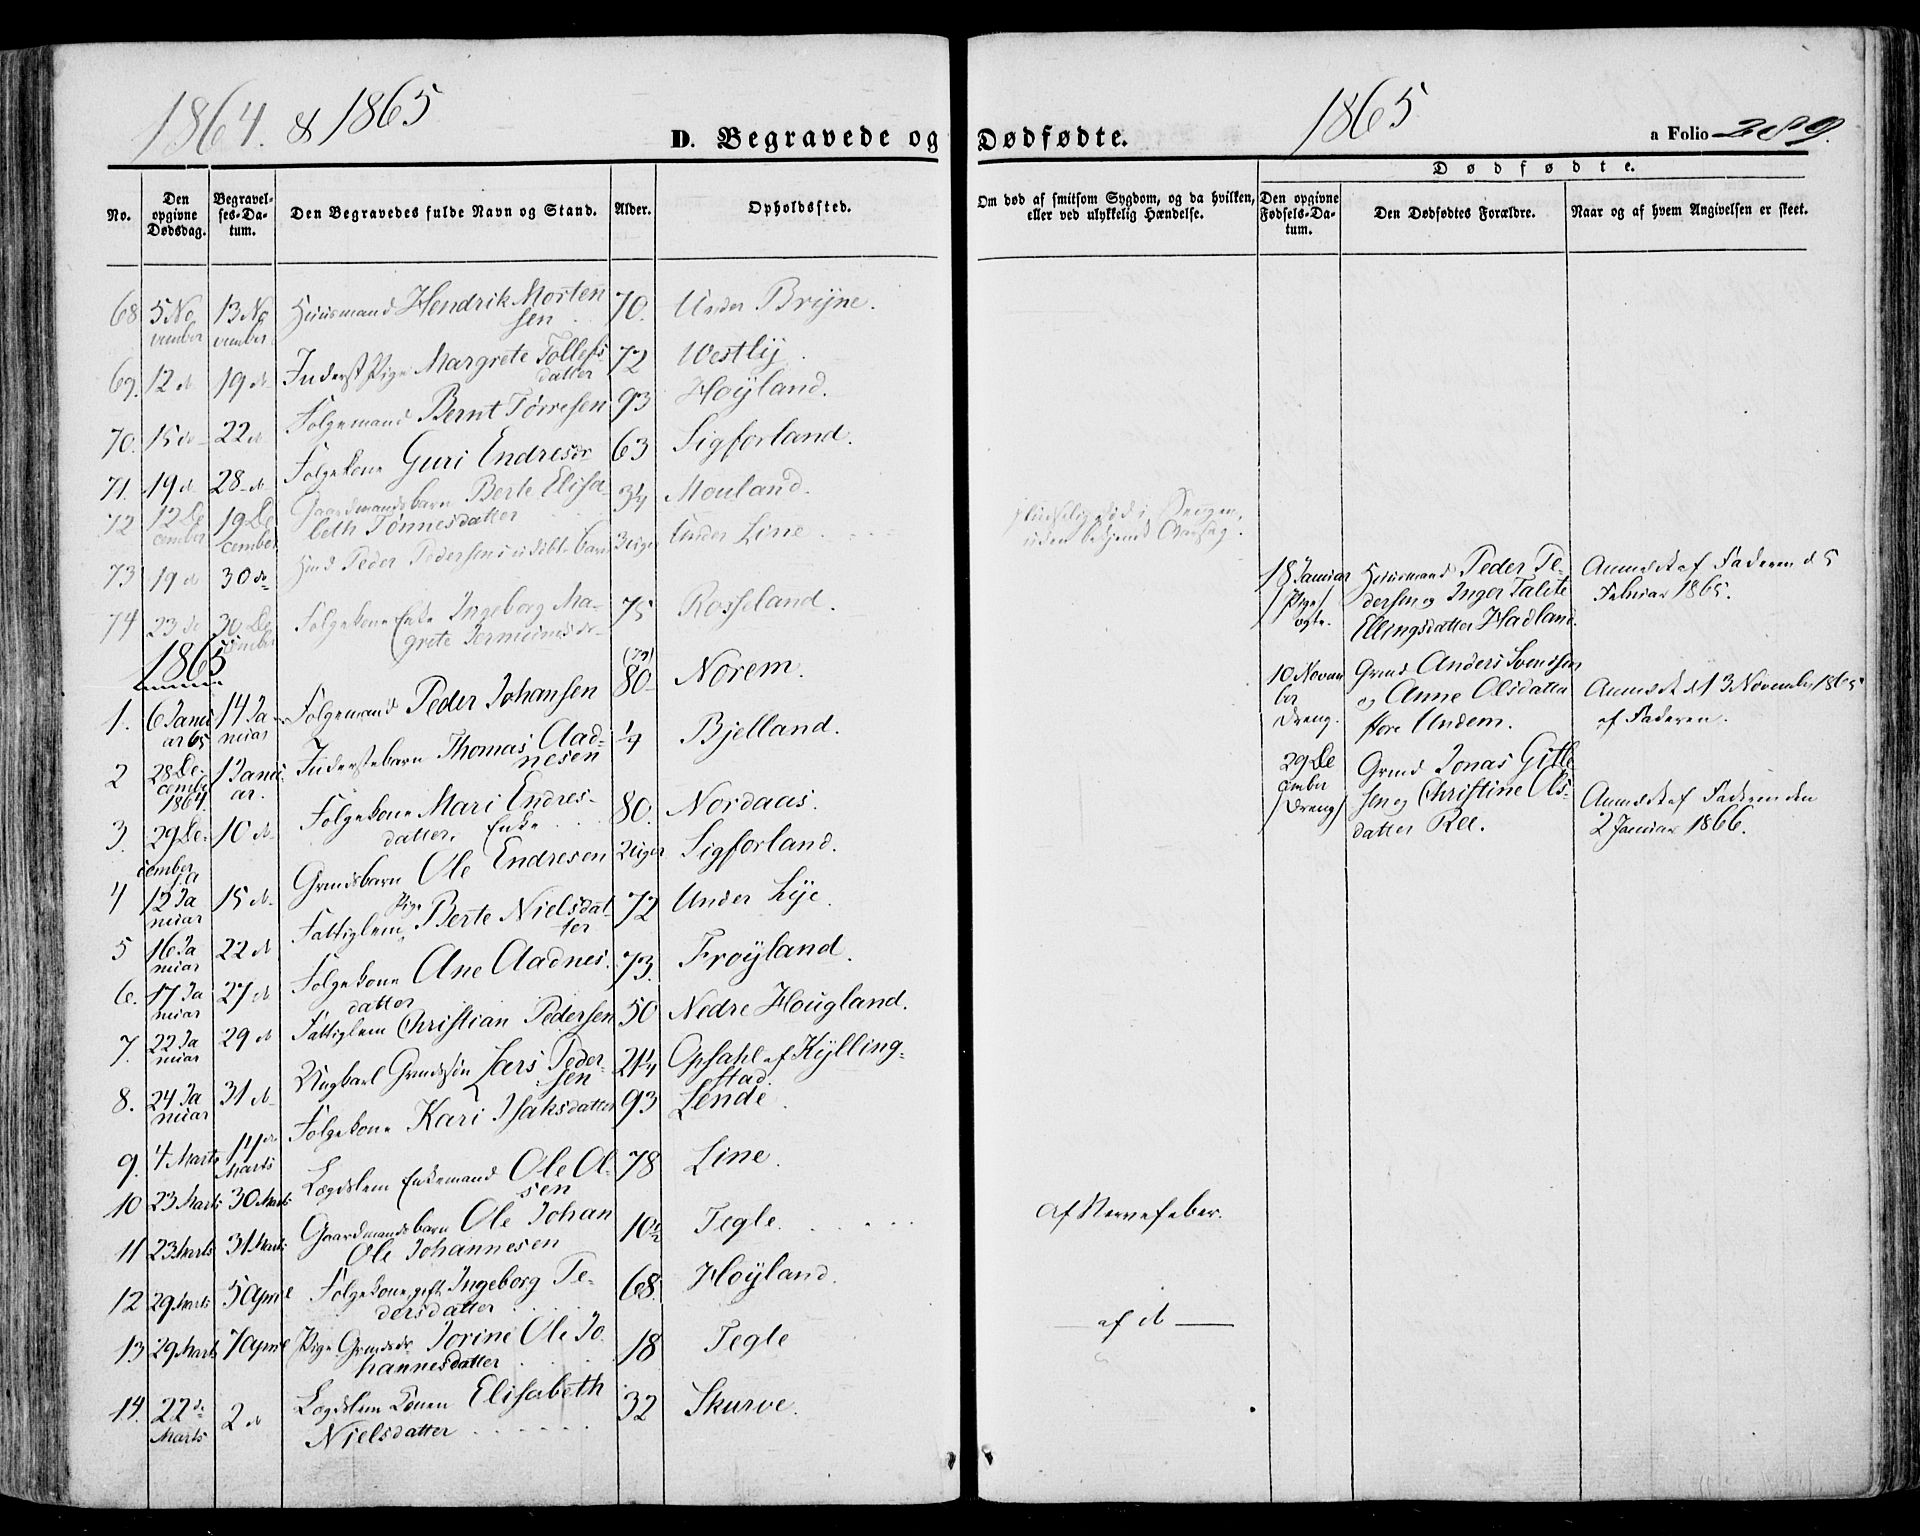 1864. & 1865
D. Begravede og Dødfødte.
1865
a Folio 289.
No.
Den opgivne Dødsdag.
Begravelses-Datum.
Den Begravedes fulde Navn og Stand.
Alder.
Opholdssted.
Om død af smitsom Sygdom, og da hvilken, eller ved ulykkelig Hændelse.
Dødfødte.
Den opgivne Fødsels-Datum.
Den Dødfødtes Forældre.
Naar og af hvem Angivelsen er skeet.
68 5 November 13 November Huusmand Hendrik Mortensen 70. Under Bryne.
69. 12 d 19 d Inderst Pige Margrete Tollefsdatter 72 Westly.
70. 15 d 22 d Folgemand Bernt Tørresen 93 Høyland.
71. 19 d 28 d Folgekone Guri Endresdr 63 Sigforland.
72 12 December 19 December Gaardmandsbarn Berte Elisabeth Tønnesdatter 3 1/4 Mouland. pludselig død i Sengen, uden bekjendt Aarsag.
73 19 d 30 d Hmd Peder Pedersens udøbte barn 3 Uger Under Line
74 23 d 30 December Folgekone Enke Ingeborg Magrete 75 Rosseland.
1865
1. 6 Januar 65 14 Januar Folgemand Peder Johansen (79) 80 Norem.
2 28 December 1864. 1 Januar. Inderstebarn Thomas Aadnesen 1/4 Bjelland.
3. 29 December 10 d Folgekone Mari Endresdatter, Enke 80. Nordaas.
4 12 Januar 15 d Grmdsbarn Ole Endresen 2 Uger Sigforland.
5 16 Januar 22 d Fattiglem Pige Berte Nielsdatter 72 Under Lye.
6. 17 Januar 27 d Folgekone Ane Aadnesdatter 73. Frøyland.
7. 22 Januar 29 d Fattiglem Christian Pedersen 50 Nedre Hougland.
8. 24 Januar 31 d Ungkarl Grmdssøn Lars Pedersen 21 1/4 Opsahl af Kyllingstad.
9. 4 Marts 14 d Marts Folgekone Kari Isaksdatter 93 Lende.
10 23 Marts 30 Marts Lægdslem Enkemand Ole Olsen 78 Line.
11 23 Marts 31 Marts Gaardmandsbarn Ole Johan Ole Johannesen 10 1/2 Tegle. Af Nervefeber.
12 29 Marts 5 Aprile Folgekone gift Ingeborg Pedersdatter 68. Høyland.
13 29 Marts 7 Aprile Pige Grmdsdr Jorine Ole Johannesdatter 18 Tegle — af d —
14. 22 d Marts 2 d Lægdslem Konen Elisabeth Nielsdatter 32 Skurve.
18 Januar /Pige/ ægte. Huusmand Peder Pedersen og Inger Talite Ellingsdatter Hadland. Anmeldt af Faderen d 5 Februar 1865.
10 November Dreng. Grmd Anders Svendsen og Anne Olsdatter store Undem. Anmeldt d 13 November 1865 af Faderen.
29 December /Dreng/ Grmd Jonas Gitlesen og Christine Olsdatter Ree. Anmeldt af Faderen den 2 Januar 1866.